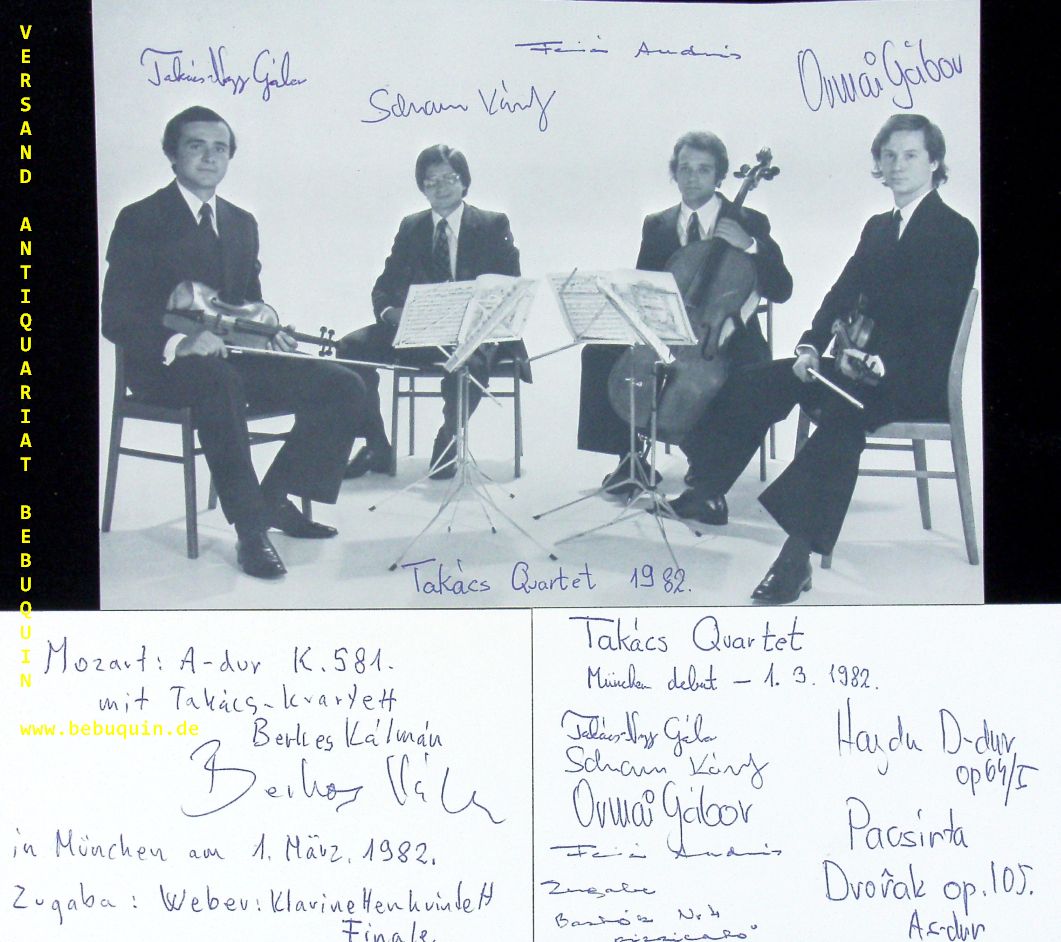 VERSAND ANTIQUARIAT BEBUQUIN
www.bebuquin.de
Takács-Nagy Gábor
Schranz Károly
Fejér András
Ormai Gábor
Takács Quartet 1982.
Mozart: A-dur K.581.
mit Takács-kvartett
Berkes Kálmán
Berkes Kál
in München am 1. März. 1982.
Zugaba: Weber: Klarinettenkvindett
Finale.
Takács Quartet
München debut – 1. 3. 1982.
Takács-Nagy Gábor
Schranz Károly
Ormai Gábor
Fejér András
Zugabe
Bartók Nr. 4
"pizzicato"
Haydn D-dur
op 64/I
Pacsirta
Dvořák op. 105.
As-dur